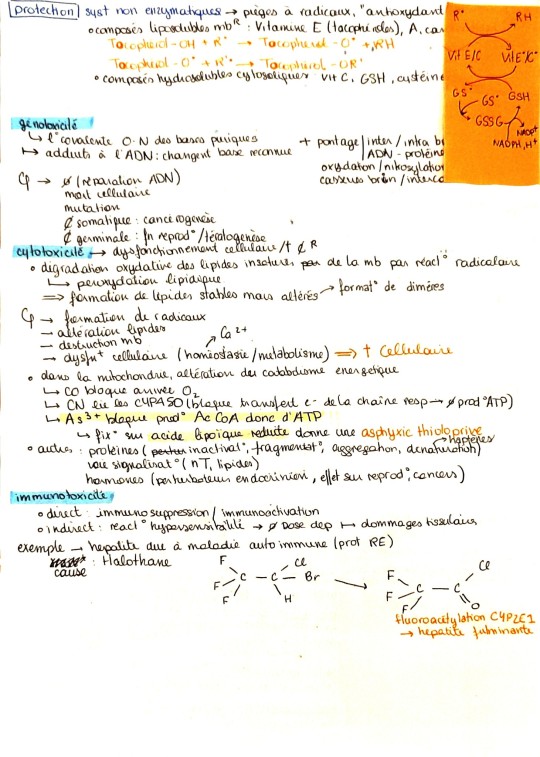 protection syst non enzymatiques → pièges à radicaux, "antioxydant
• composés liposolubles mbR : Vitamine E (tocophéroles), A, car
Tocopherol-OH + R• → Tocopherol-O• + RH
Tocopherol-O• + R'• → Tocopherol-OR'
• composés hydrosolubles cytosoliques vit C, GSH, cystéine
R• RH
Vit E/C Vit E•/C•
GS• GSH
GS•
GSSG
NADP+
NADPH, H+
génotoxicité
↳ l° covalente O-N des bases puriques
↳ adduits à l'ADN: changent base reconnue
+ pontage inter/intra bri
ADN-protéine
oxydation/nitrosylation
cassures brin/interca
Cp → ∅ (réparation ADN)
mort cellulaire
mutation
¢ somatique : cancerogenèse
¢ germinale : fn reprod°/tératogenèse
cytotoxicité ↦ dysfonctionnement cellulaire/† ¢R
• dégradation oxydative des lipides insaturés de la mb par react° radicalaire
↳ peroxydation lipidique
⇒ formation de lipides stables mais altérés → format° de dimères
Cp → formation de radicaux
- altération lipides
- destruction mb
→ dysfn+ cellulaire (homéostasie/métabolisme) ⇒ † cellulaire
Ca2+
• dans la mitochondrie, altération du catabolisme energetique
↳ CO bloque arrivée O2
↳ CN lie les CYP450 (bloque transfert e- de la chaîne resp → ∅ prod° ATP)
↳ As3+ bloque prod° Ac CoA donc d'ATP
↳ fix° sur acide lipoïque reduite donne une asphyxie thioloprive
• autres : protéines (inactivat°, fragmentat°, aggregation, dénaturation)
↳ haptènes
voie signalisat° (nT, lipides)
hormones (perturbateurs endocriniens, effet sur reprod°, cancers)
immunotoxicité
• direct : immunosuppression/immunoactivation
• indirect : react° hypersensibilité → ∅ dose dep ↦ dommages tissulaires
exemple → hepatite due à maladie auto immune (prot RE)
cause : Halothane
F Cl
F - C - C - Br
F H
→
F Cl
F - C - C
F O
fluoroacétylation CYP2E1
→ hepatite fulminante